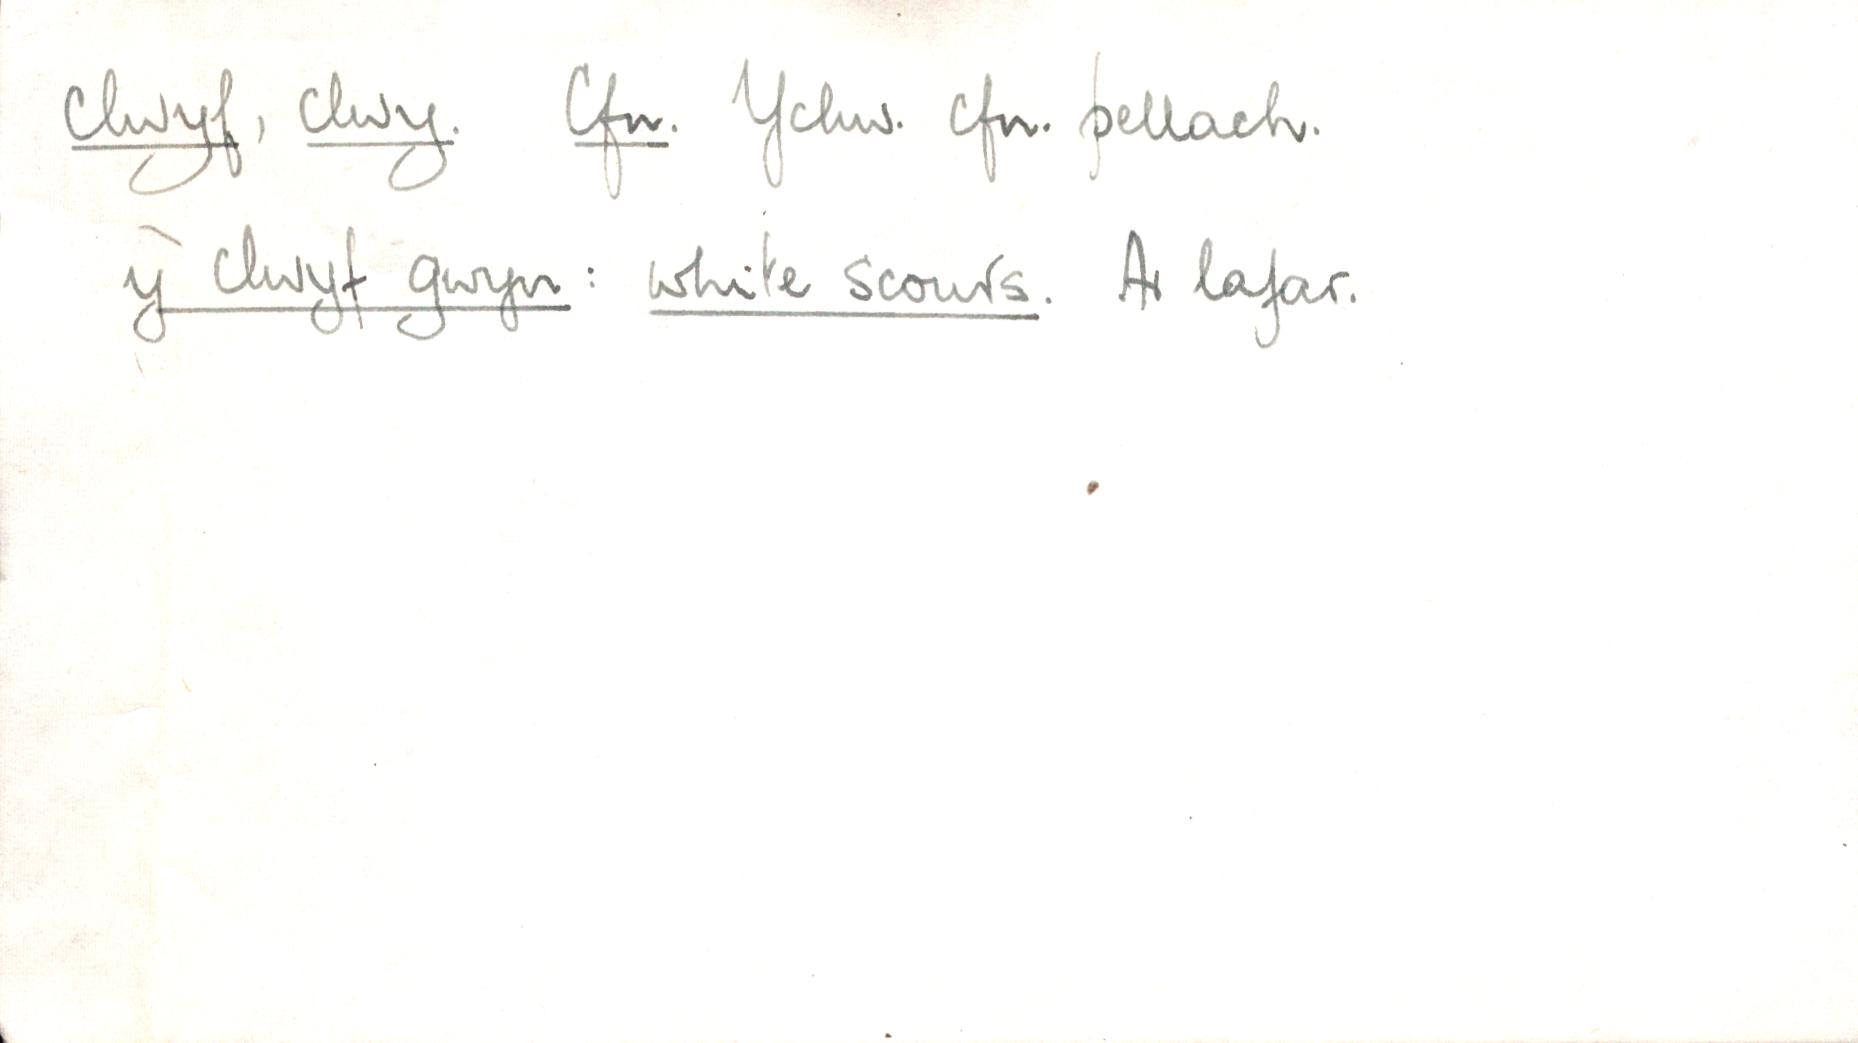 clwyf, clwy. Cfn. Ychw. cfn. pellach.
y clwyf gwyn: white scours. Ar lafar.